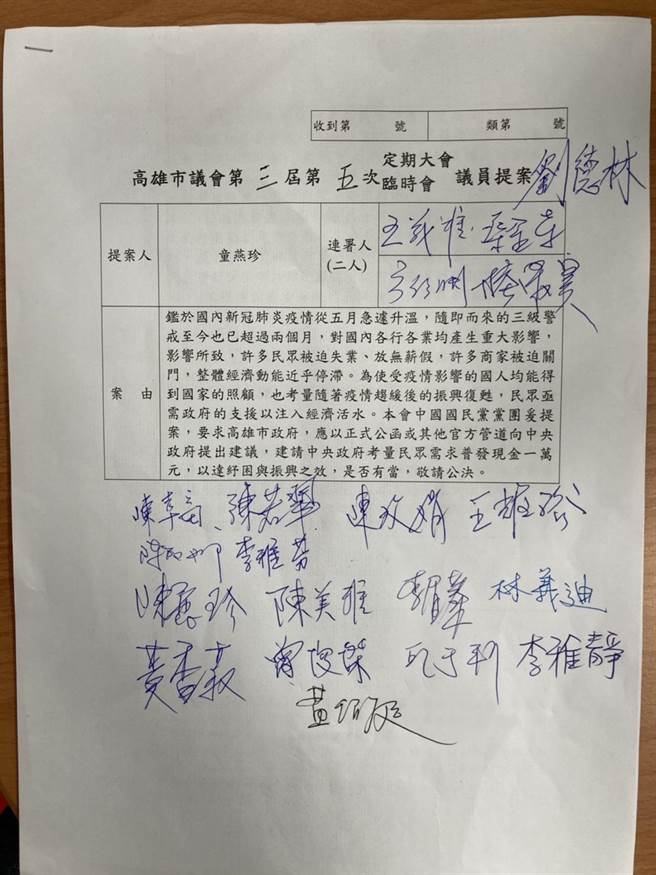 收到第 號 類第 號
高雄市議會第三屆第五次 定期大會 臨時會 議員提案 劉德林
提案人 童燕珍 連署人(二人)
案由
鑑於國內新冠肺炎疫情從五月急遽升溫，隨即而來的三級警
戒至今也已超過兩個月，對國內各行各業均產生重大影響，
影響所致，許多民眾被迫失業、放無薪假，許多商家被迫關
門，整體經濟動能近乎停滯。為使受疫情影響的國人均能得
到國家的照顧，也考量隨著疫情趨緩後的振興復甦，民眾亟
需政府的支援以注入經濟活水。本會中國國民黨黨團爰提
案，要求高雄市政府，應以正式公函或其他官方管道向中央
政府提出建議，建請中央政府考量民眾需求普發現金一萬
元，以達紓困與振興之效，是否有當，敬請公決。
陳若翠 陳玫娟
李雅芬
陳麗珍 陳美雅 林義迪
黃香菽 曾俊傑 邱于軒 李雅靜